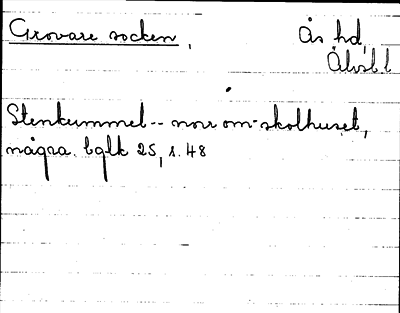 Grovare socken, Ås hd,
Älvsb l
Stenkummel -- norr om skolhuset,
några. bglk 25, s. 48